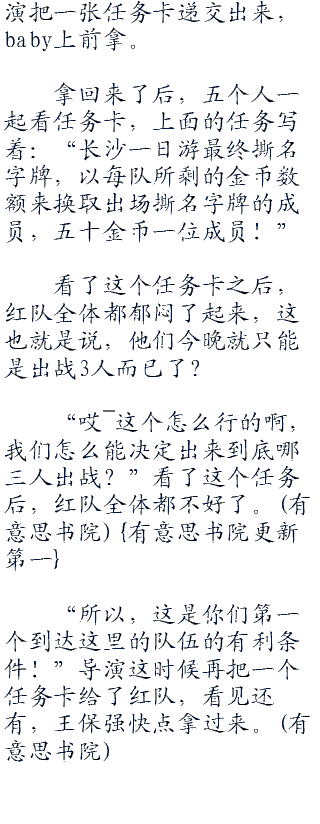 演把一张任务卡递交出来，
baby上前拿。
拿回来了后，五个人一
起看任务卡，上面的任务写
着：“长沙一日游最终撕名
字牌，以每队所剩的金币数
额来换取出场撕名字牌的成
员，五十金币一位成员！”
看了这个任务卡之后，
红队全体都郁闷了起来，这
也就是说，他们今晚就只能
是出战3人而已了？
“哎¯这个怎么行的啊，
我们怎么能决定出来到底哪
三人出战？”看了这个任务
后，红队全体都不好了。(有
意思书院) {有意思书院更新
第一}
“所以，这是你们第一
个到达这里的队伍的有利条
件！”导演这时候再把一个
任务卡给了红队，看见还
有，王保强快点拿过来。(有
意思书院)